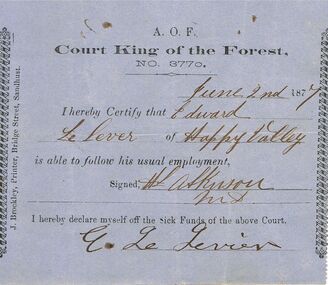 A. O. F.
Court King of the Forest,
NO. 3770.
June 2nd 1877
I hereby Certify that Edward
Le Lever of Happy Valley
is able to follow his usual employment,
Signed, H Atkinson
M D
I hereby declare myself off the Sick Funds of the above Court.
E. Le Levier
J. Brockley, Printer, Bridge Street, Sandhurst.